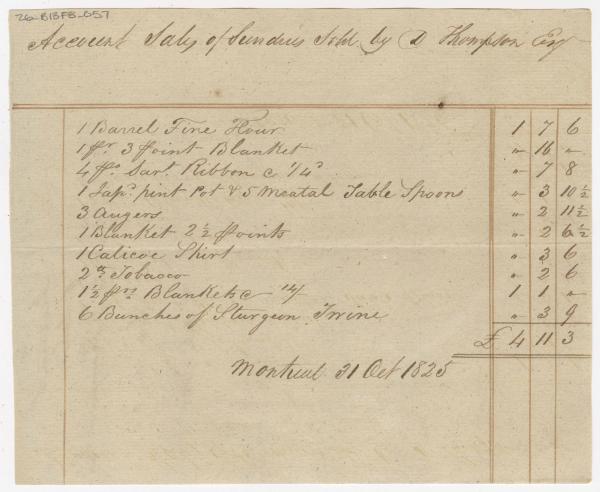 26-BIBFB-057
Account Sales of Sundries Sold by D Thompson Esqr
1 Barrel Fine Flour 1 7 6
1 pr 3 point Blanket " 16 "
4 ps Sart. Ribbon c 1/4 " 7 8
1 Jap.d pint Pot & 5 Meatal Table Spoons " 3 10 1/2
3 Augers " 2 11 1/2
1 Blanket 2 1/2 points " 2 6 1/2
1 Calicoe Shirt " 3 6
2 lb Tobacco " 2 6
1 1/2 prs Blankets c 14/ 1 1 "
6 Bunches of Sturgeon Twine " 3 9
£ 4 11 3
Montreal 31 Oct 1825